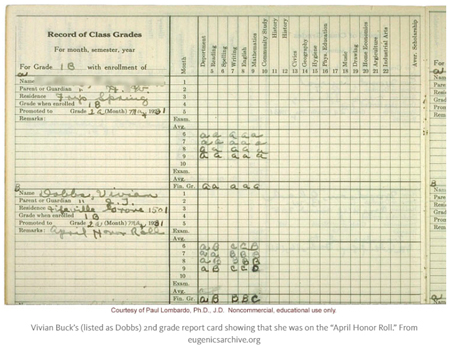 Record of Class Grades
For month, semester, year
For Grade 1B with enrollment of
Month
Department
Reading
Spelling
Writing
English
Mathematics
Community Study
History
History
Civics
Geography
Hygiene
Phys. Education
Music
Drawing
Home Economics
Agriculture
Industrial Arts
Aver. Scholarship
5 6 7 8 9 10 11 12 13 14 15 16 17 18 19 20 21 22
A
Name
Parent or Guardian " "
Residence Free Spring
Grade when enrolled 1B
Promoted to Grade 2a (Month) May 1931
Remarks:
1
2
3
4
5
Exam.
Avg.
6 a a a a a
7
8
9
Exam.
Avg.
Fin. Gr. a a a a a
B
Name Dobbs, Vivian
Parent or Guardian " J.T.
Residence Grove 1501
Grade when enrolled 1B
Promoted to Grade 2a (Month) 1931
Remarks: April Honor Roll
1
2
3
4
5
Exam.
Avg.
6 a B C C B
7
8
9 a B C C
Exam.
Avg.
Fin. Gr. a B B B C
Courtesy of Paul Lombardo, Ph.D., J.D. Noncommercial, educational use only.
Vivian Buck's (listed as Dobbs) 2nd grade report card showing that she was on the "April Honor Roll." From
eugenicsarchive.org